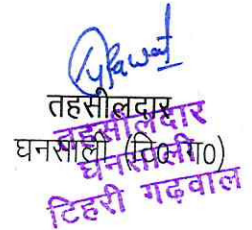 तहसीलदार
घनसाली (टि०ग०)
तहसीलदार
घनसाली
टिहरी गढ़वाल